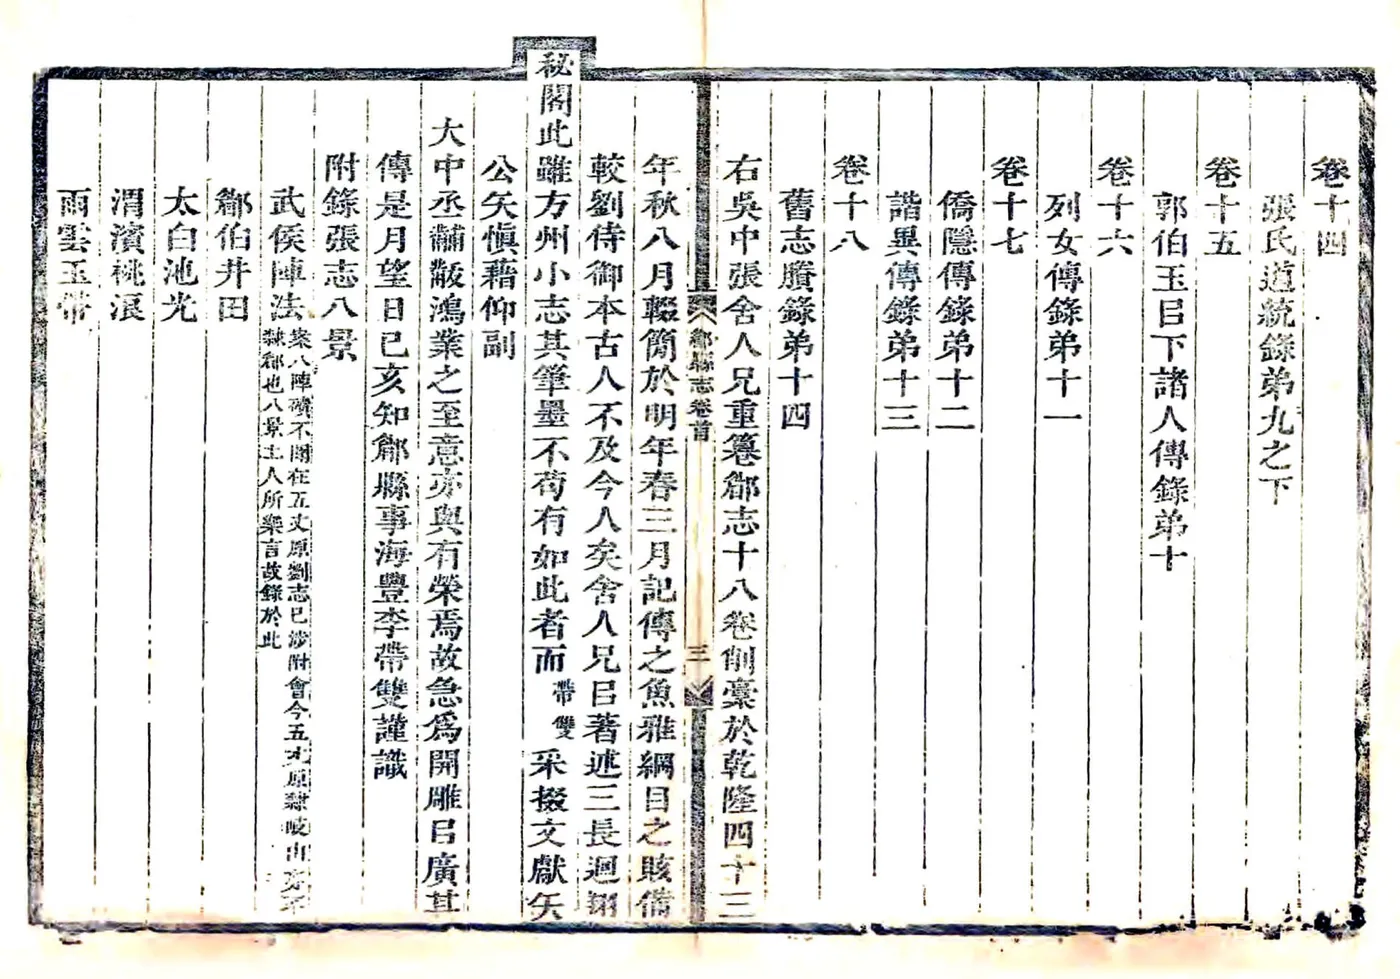 卷十四
張氏道統錄弟九之下
卷十五
郭伯玉㠯下諸人傳錄弟十
卷十六
列女傳錄弟十一
卷十七
僑隱傳錄弟十二
諧異傳錄弟十三
卷十八
舊志賸錄弟十四
右吳中張舍人兄重纂郿志十八卷削稾於乾隆四十三
郿縣志卷首
三
年秋八月輟簡於明年春三月記傳之魚雅綱目之賅備
較劉侍御本古人不及今人矣舍人兄㠯著述三長迴翔
秘閣此雖方州小志其筆墨不苟有如此者而帶雙采掇文獻矢
公矢慎藉仰副
大中丞黼黻鴻業之至意亦與有榮焉故急爲開雕㠯廣其
傳是月望日己亥知郿縣事海豐李帶雙謹識
附錄張志八景
武侯陣法
案八陣磧不聞在五丈原劉志已涉附會今五丈原隸岐山亦不
隸郿也八景土人所樂言故錄於此
郿伯井田
太白池光
渭濱桃浪
雨雲玉帶